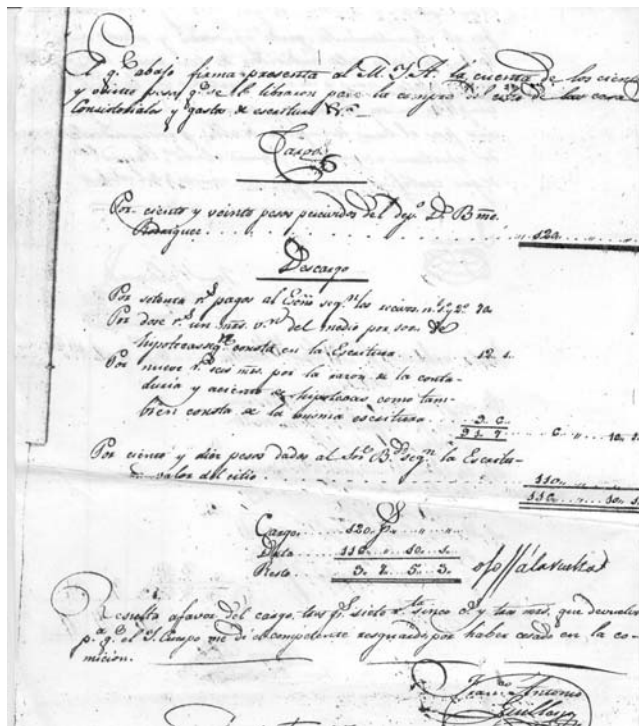 El q.e abajo firma presenta al M. I. A. la cuenta de los ciento
y veinte pesos q.e se le libraron para la compra del sitio de las casas
Consistoriales y gastos de escritura
Cargo
Por ciento y veinte pesos percividos del dep.o D.n B.me
Rodriguez 120
Descargo
Por setenta r.s pagos al Esno seg.n los recivos n.o 1 y 2.o 70
Por doce r.s un mrs. v.n del medio por
hipotecas sg.n consta en la Escritura 12 1
Por nueve r.s seis mrs. por la razon de la conta-
duria y aciento de hipotecas como tam-
bien consta de la misma escritura 9 6
91 7
Por ciento y diez pesos dados al Sor. B.me seg.n la Escritu-
valor del citio 110
Cargo 120 p.s
Resto 3 7 5 3
Resulta a favor del cargo, tres p.s siete r.s cinco q.s y tres mrs. que devuelvo
p.a q.e el I. Cuerpo me dé el competente resguardo por haber cesado en la co-
micion.
Franco. Antonio